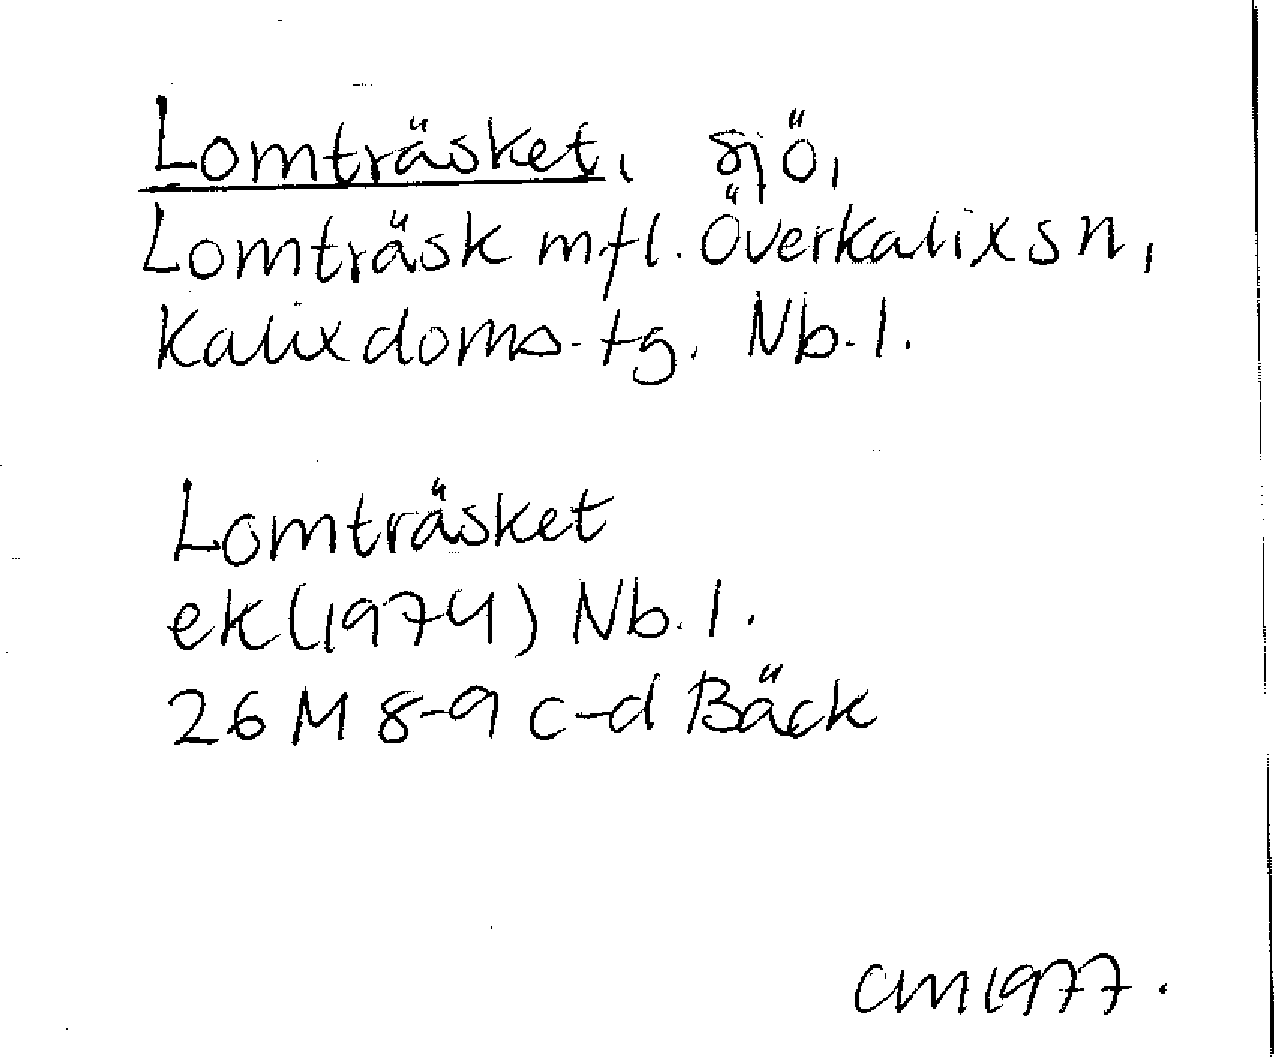 Lomträsket, sjö,
Lomträsk mfl. Överkalix sn,
Kalix doms. tg. Nb. l.
Lomträsket
ek (1974) Nb. l.
26 M 8-9 c-d Bäck
CM 1977.